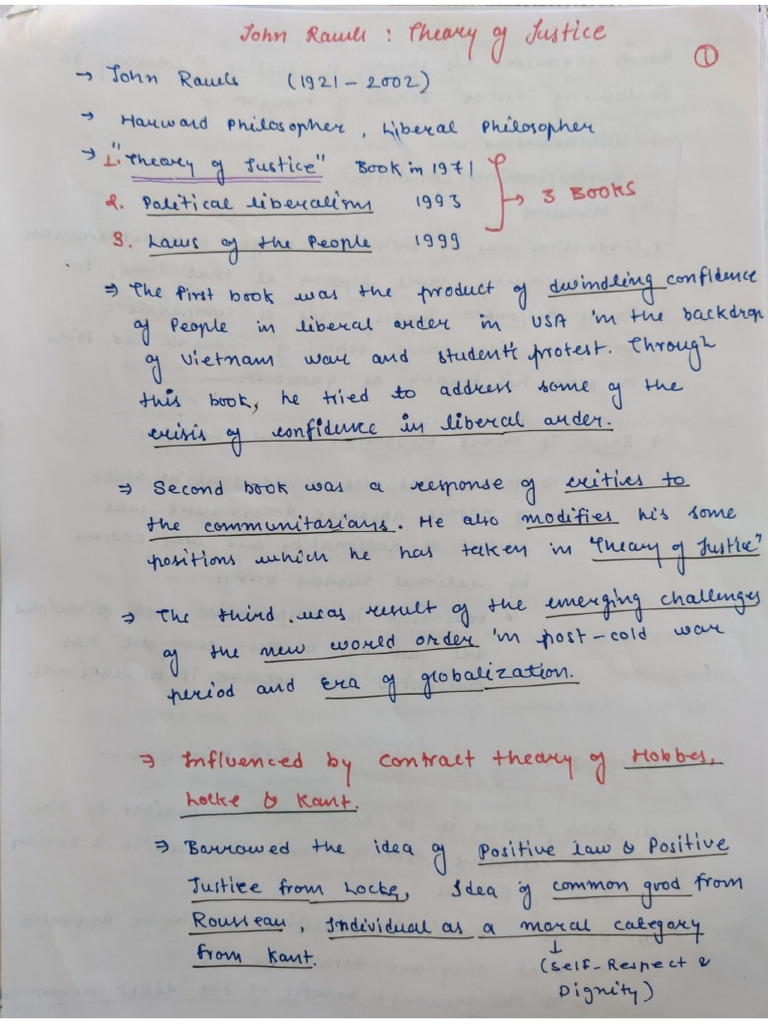 John Rawls : Theory of Justice
①
→ John Rawls (1921 – 2002)
→ Harward Philosopher, Liberal Philosopher
→ 1. "Theory of Justice" Book in 1971
2. Political liberalism 1993 → 3 Books
3. Laws of the People 1999
⇒ The first book was the product of dwindling confidence
of People in liberal order in USA in the backdrop
of Vietnam war and students protest. Through
this book, he tried to address some of the
crisis of confidence in liberal order.
⇒ Second book was a response of critics to
the communitarians. He also modifies his some
positions which he has taken in "Theory of Justice"
⇒ The third was result of the emerging challenges
of the new world order in post-cold war
period and Era of globalization.
⇒ Influenced by contract theory of Hobbes,
Locke & Kant.
⇒ Borrowed the idea of Positive law & Positive
Justice from Locke, Idea of common good from
Rousseau, Individual as a moral category
from Kant. ↓
(Self-Respect &
Dignity)